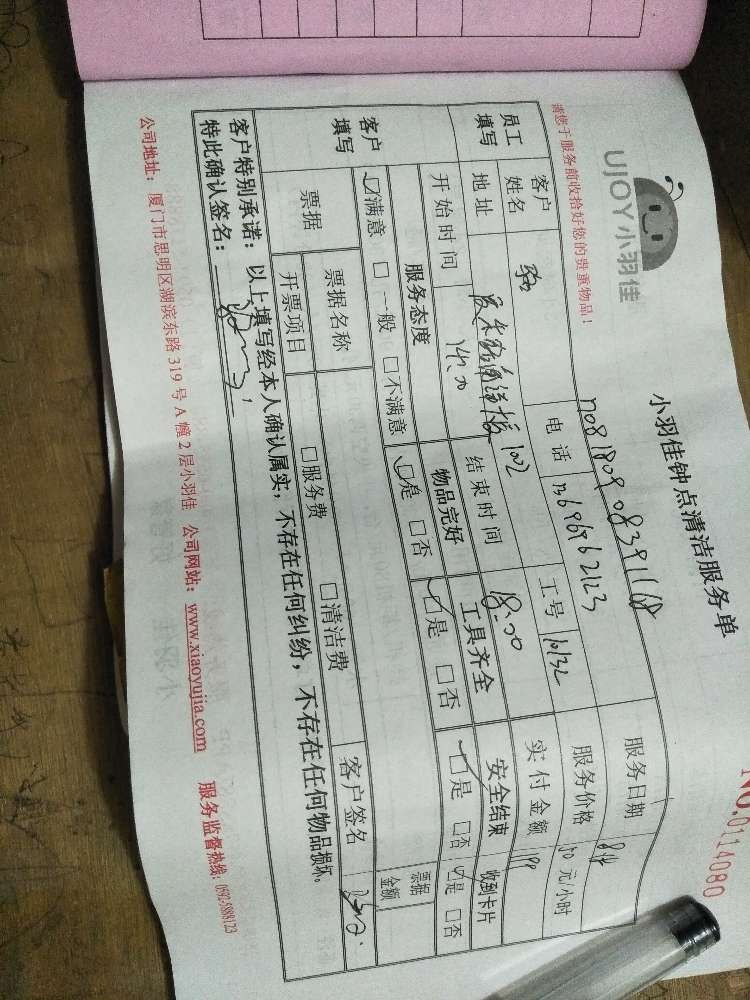 UJOY小羽佳
小羽佳钟点清洁服务单
NO.0114080
请您于服务前收拾好您的贵重物品！
服务日期
员工填写
客户姓名
电话
工号 10132
服务价格 50 元/小时
地址 1002
实付金额
开始时间 14:00
结束时间 18:00
客户填写
服务态度
物品完好
工具齐全
安全结束
收到卡片
满意 一般 不满意
是 否
是 否
是 否
是 否
票据
票据名称
票据金额
开票项目
服务费
清洁费
客户签名
客户特别承诺：以上填写经本人确认属实，不存在任何纠纷，不存在任何物品损坏。
特此确认签名：
公司地址：厦门市思明区湖滨东路 319 号 A 幢 2 层小羽佳 公司网站：www.xiaoyujia.com 服务监督热线：0592-5888123